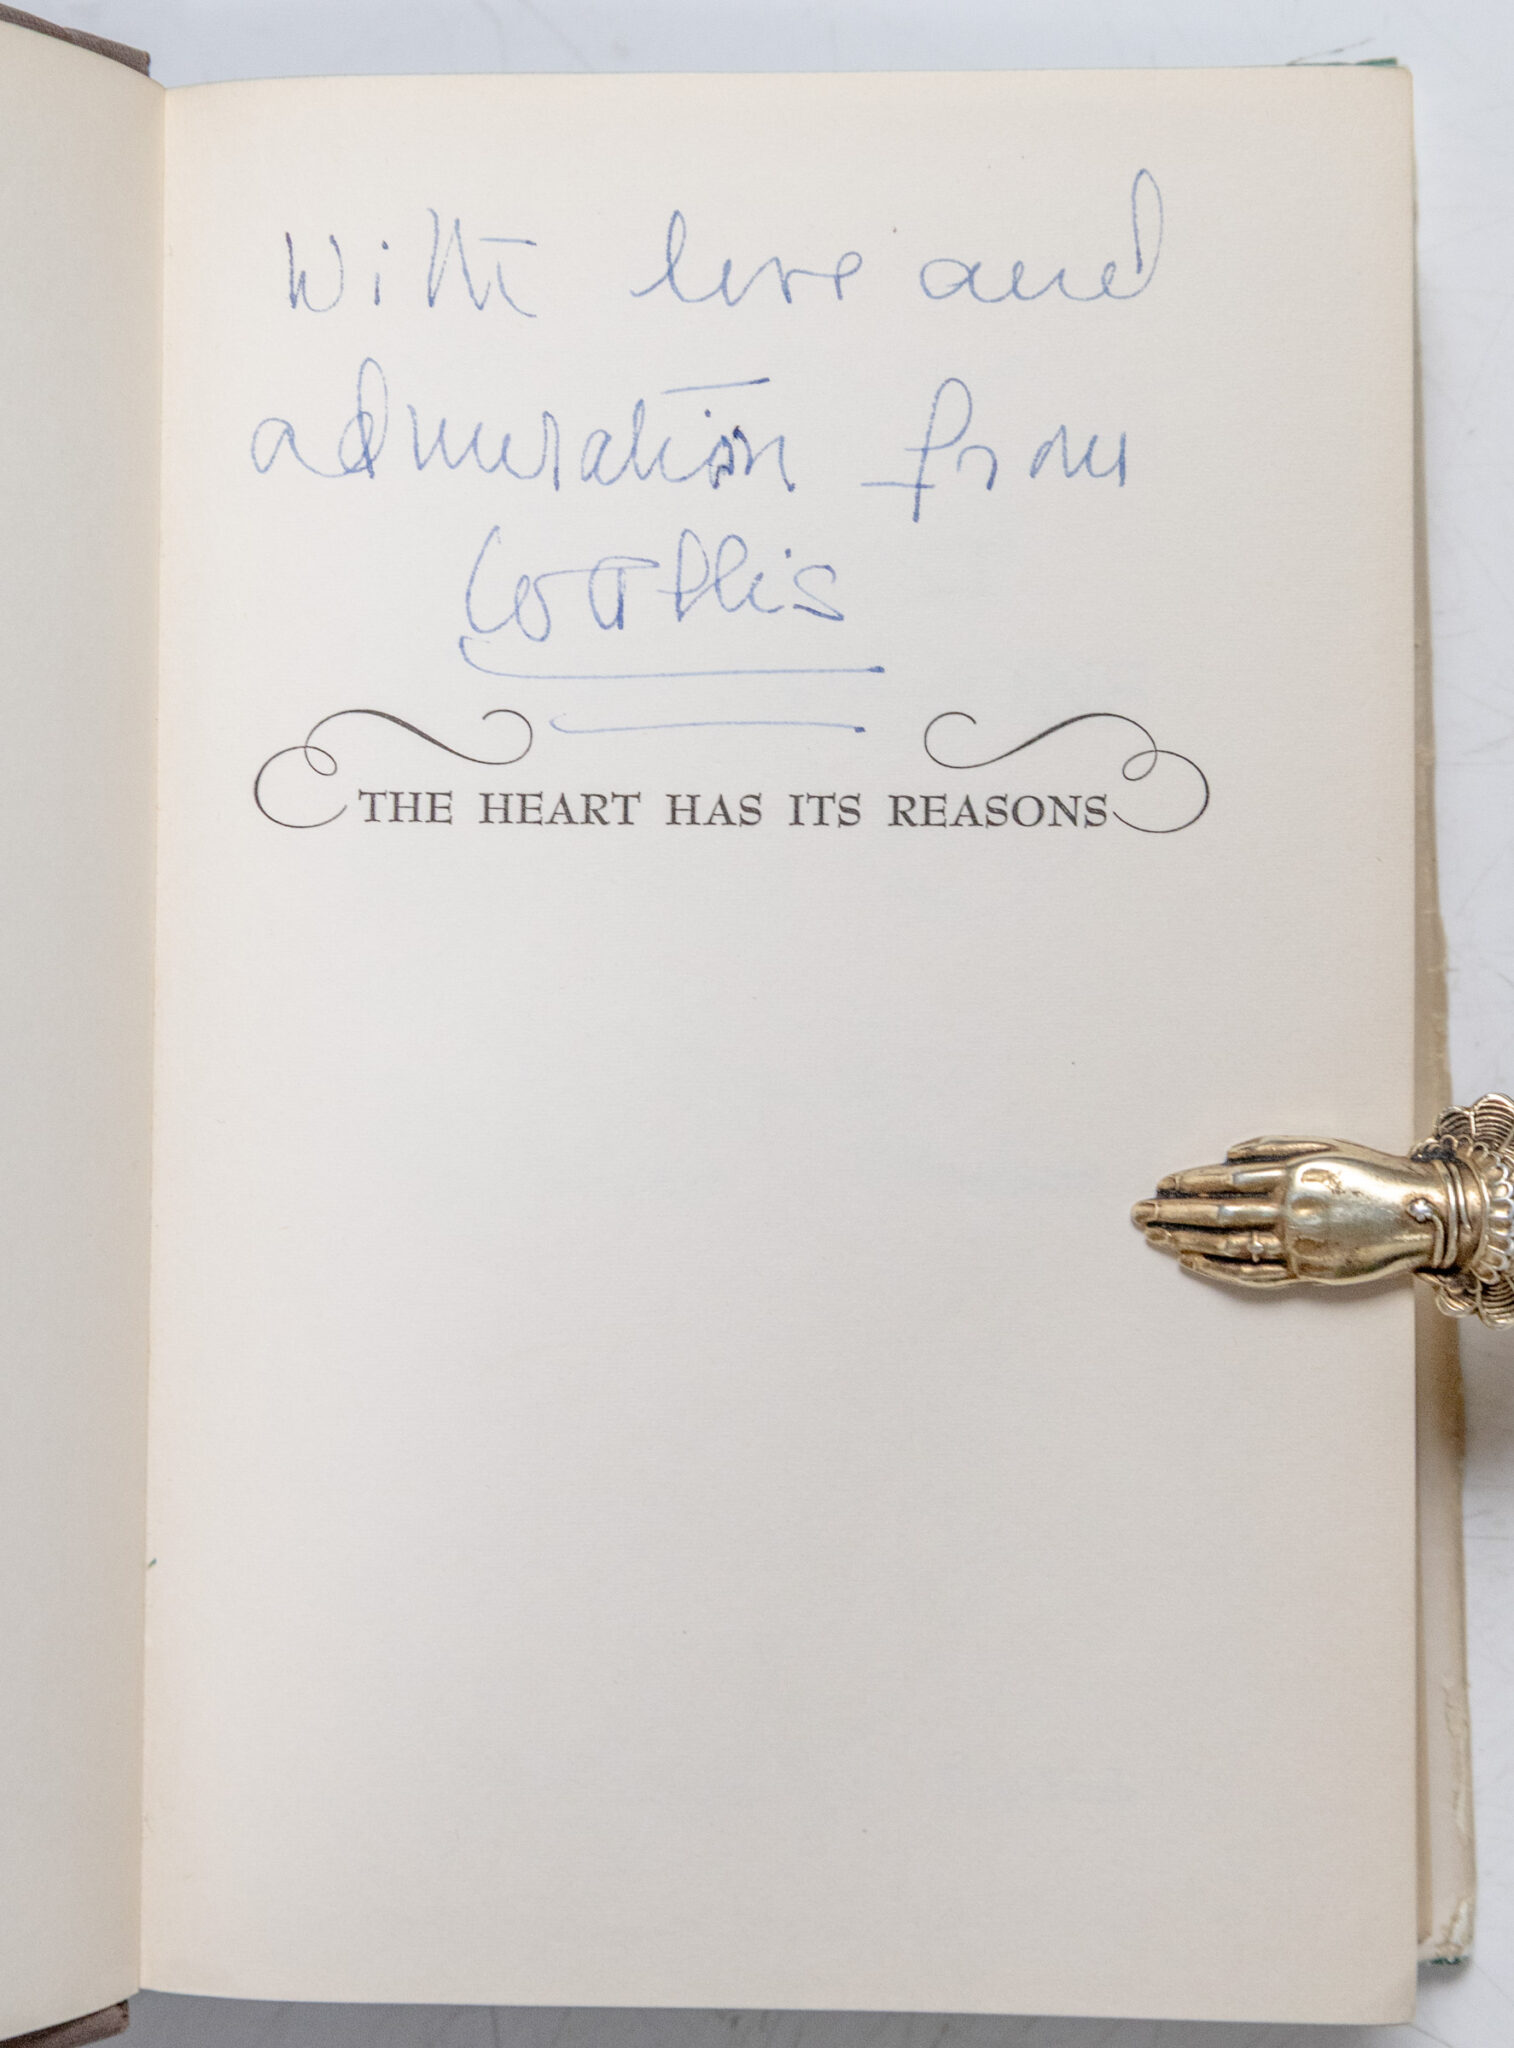 With love and
admiration from
Wallis
THE HEART HAS ITS REASONS